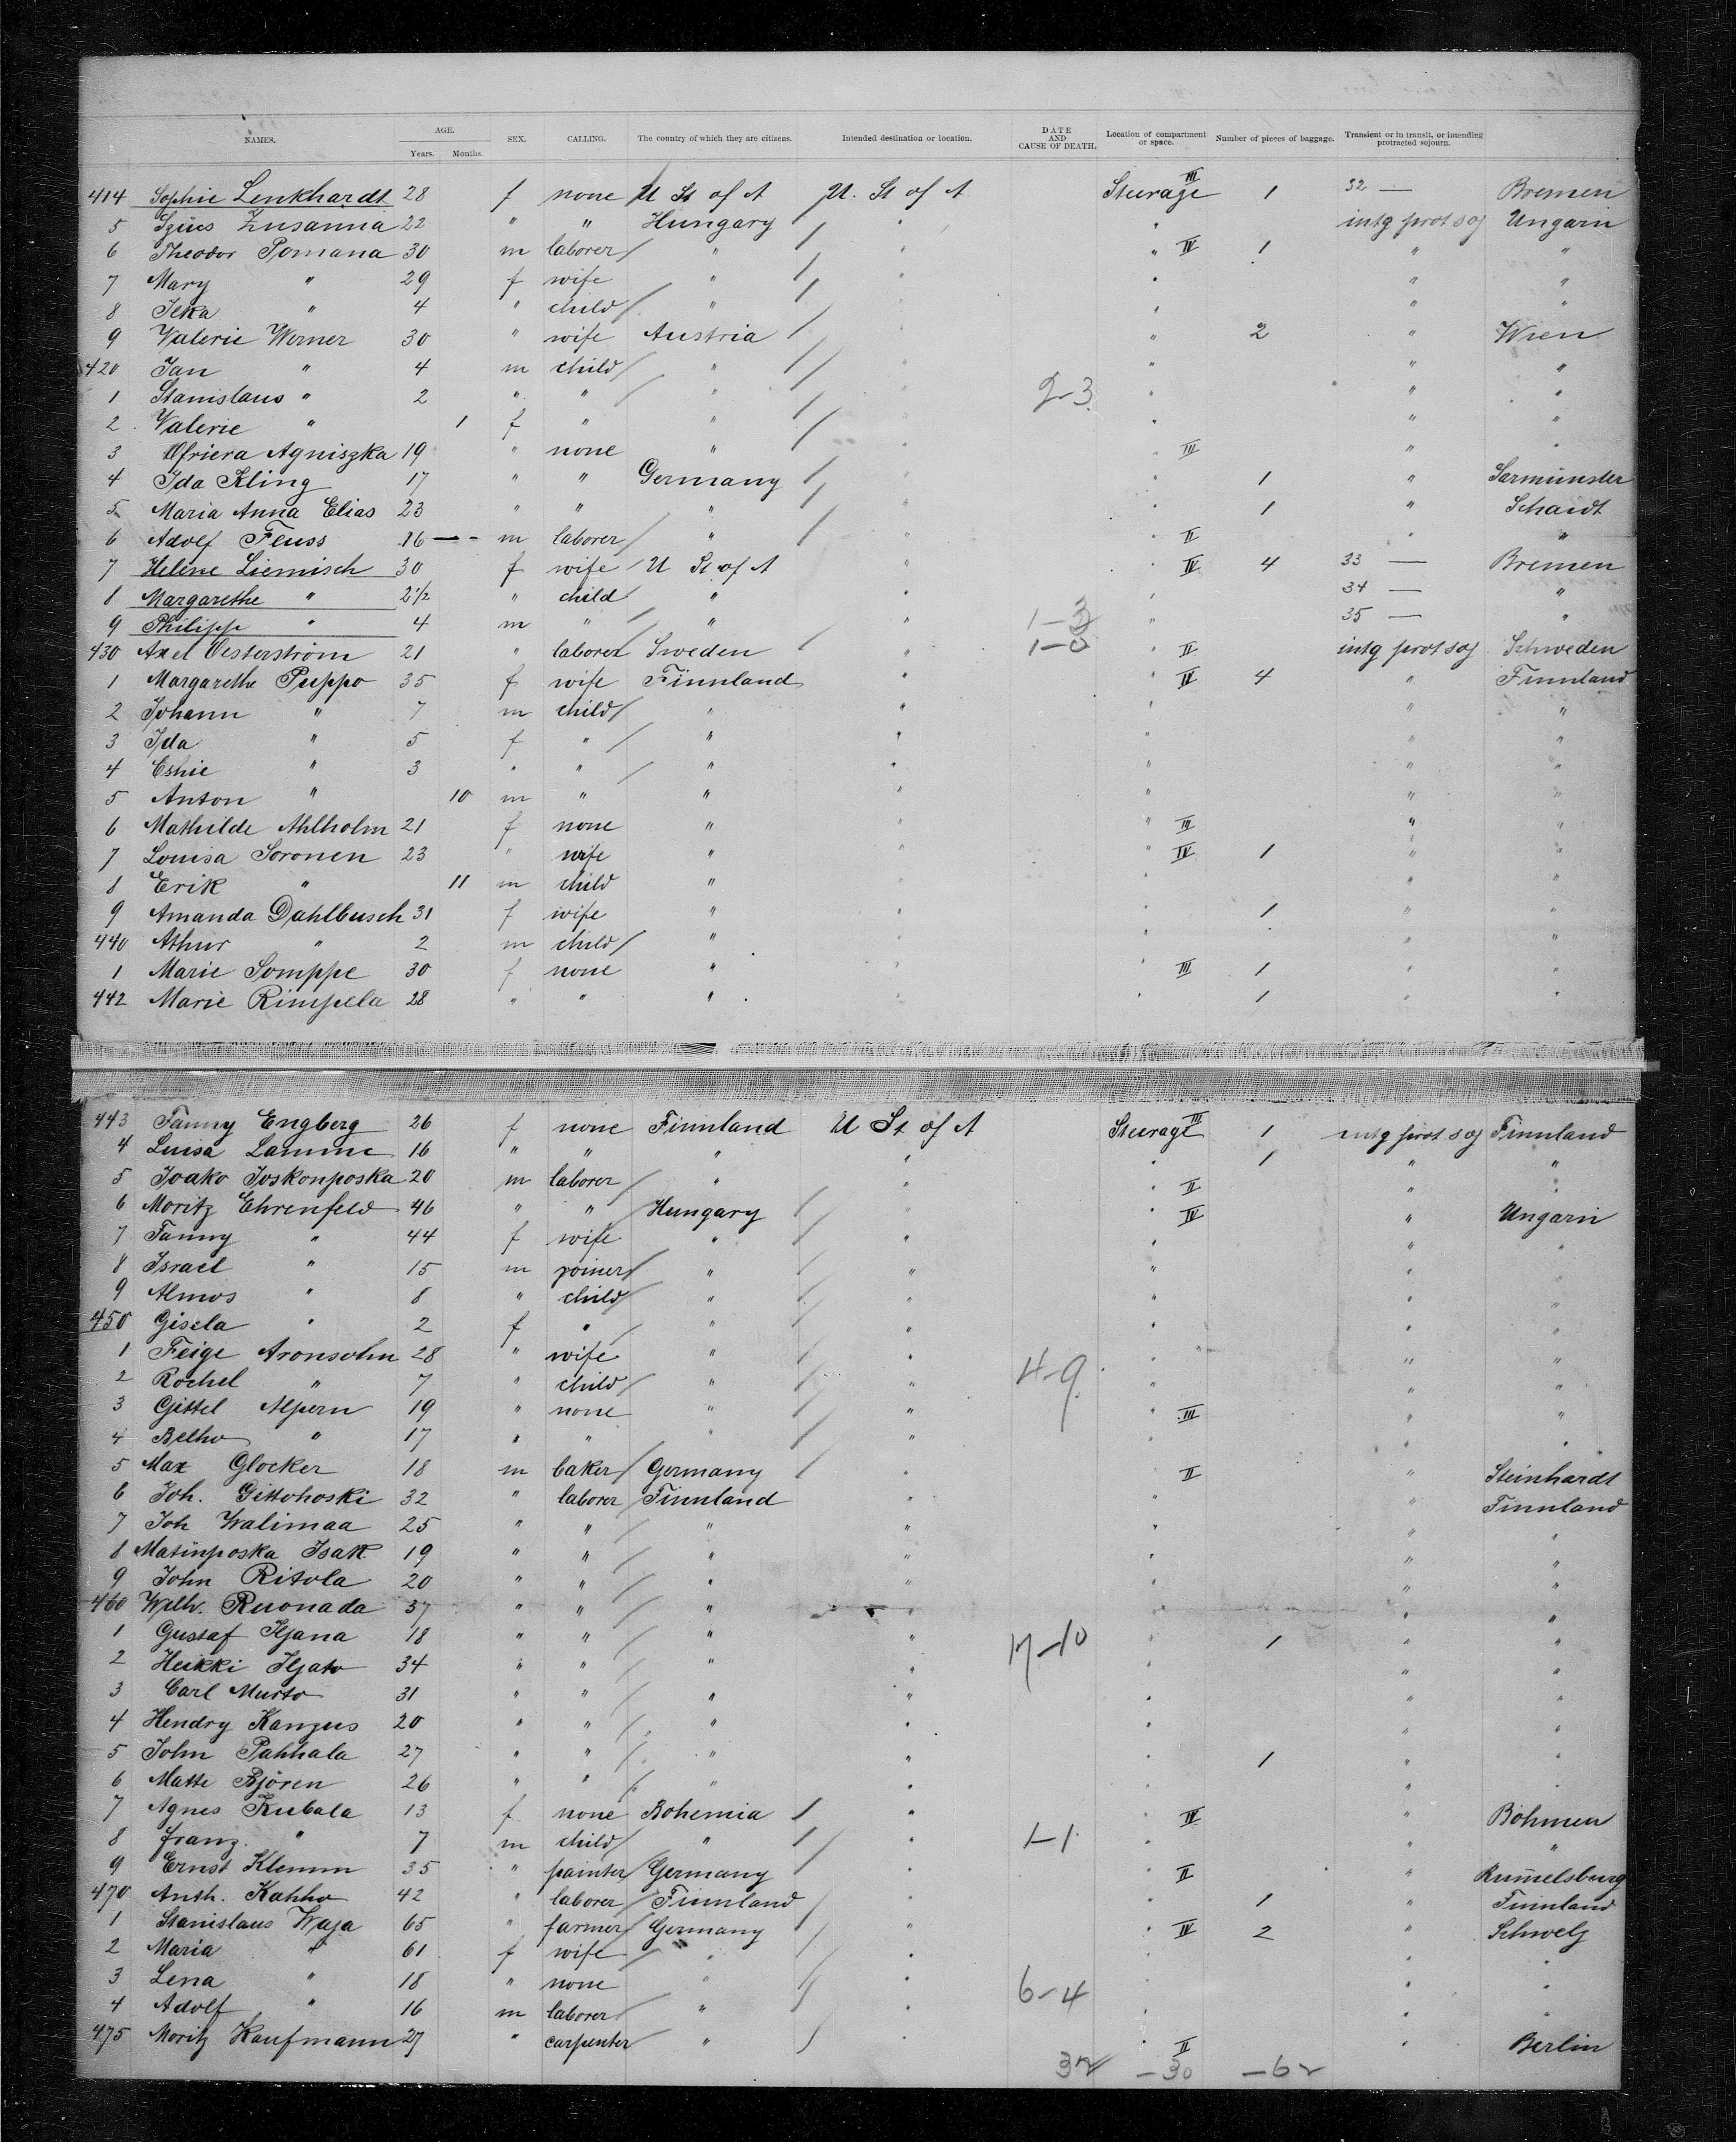 NAMES. AGE. Years. Months. SEX. CALLING. The country of which they are citizens. Intended destination or location. DATE AND CAUSE OF DEATH. Location of compartment or space. Number of pieces of baggage. Transient or in transit, or intending protracted sojourn.
414 Sophie Lenkhardt 28 f none U St of A U. St of A Steerage III 1 32 — Bremen
5 Szücs Zusanna 22 " " Hungary " " intg prot soj Ungarn
6 Theodor Pomana 30 m laborer " " " IV 1 " "
7 Mary " 29 f wife " " " " "
8 Ilka " 4 " child " " " " "
9 Valerie Werner 30 " wife Austria " " 2 " Wien
420 Jan " 4 m child " " " " "
1 Stanislaus " 2 " " " " 2-3 " " "
2 Valerie " 1 f " " " " " "
3 Ofriera Agniszka 19 " none " " " III " "
4 Ida Kling 17 " " Germany " " 1 " Sarmünster
5 Maria Anna Elias 23 " " " " " 1 " Schaidt
6 Adolf Feuss 16 — - m laborer " " " II " "
7 Helene Liemisch 30 f wife U St of A " " IV 4 33 — Bremen
8 Margarethe " 2½ " child " " " 34 — "
9 Philipp " 4 m " " " 1-3 " 35 — "
430 Axel Oesterström 21 " laborer Sweden " 1-0 " II intg prot soj Schweden
1 Margarethe Puppo 35 f wife Finnland " " IV 4 " Finnland
2 Johann " 7 m child " " " " "
3 Ida " 5 f " " " " " "
4 Eshie " 3 " " " " " " "
5 Anton " 10 m " " " " " "
6 Mathilde Ahlholm 21 f none " " " III " "
7 Louisa Soronen 23 " wife " " " IV 1 " "
8 Erik " 11 m child " " " " "
9 Amanda Dahlbusch 31 f wife " " " 1 " "
440 Athur " 2 m child " " " " "
1 Marie Somppe 30 f none " " III 1 " "
442 Marie Rimpela 28 " " " " " 1 " "
443 Fanny Engberg 26 f none Finnland U St of A Steerage III 1 intg prot soj Finnland
4 Luisa Lamme 16 " " " " " 1 " "
5 Joako Joskonposka 20 m laborer " " " II " "
6 Moritz Ehrenfeld 46 " " Hungary " " IV " Ungarn
7 Fanny " 44 f wife " " " " "
8 Israel " 15 m joiner " " " " "
9 Almos " 8 " child " " " " "
450 Gisela " 2 f " " " " " "
1 Feige Aronsohn 28 " wife " " 4-9 " " "
2 Rochel " 7 " child " " " " "
3 Gittel Alpern 19 " none " " " III " "
4 Belho " 17 " " " " " " "
5 Max Glocker 18 m baker Germany " II " Steinhardt
6 Joh. Gittohoski 32 " laborer Finnland " " " Finnland
7 Joh Walimaa 25 " " " " " " "
8 Matinposka Isak 19 " " " " " " "
9 John Ritola 20 " " " " " " "
460 Wilh. Ruonada 37 " " " " " " "
1 Gustaf Iljana 18 " " " " 17-10 " 1 " "
2 Heikki Iljato 34 " " " " " " "
3 Carl Murto 31 " " " " " " "
4 Hendry Kangus 20 " " " " " " "
5 John Pahhala 27 " " " " " 1 " "
6 Matte Björen 26 " " " " " " "
7 Agnes Kubala 13 f none Bohemia " " IV " Böhmen
8 Franz " 7 m child " " 1-1 " " "
9 Ernst Klemm 35 " painter Germany " " II " Rummelsburg
470 Anth. Kahho 42 " laborer Finnland " " 1 " Finnland
1 Stanislaus Waja 65 " farmer Germany " " IV 2 " Schwelz
2 Maria " 61 f wife " " " " "
3 Lena " 18 " none " " 6-4 " " "
4 Adolf " 16 m laborer " " " " "
475 Moritz Kaufmann 27 " carpenter " " " II " Berlin
32 -30 -62